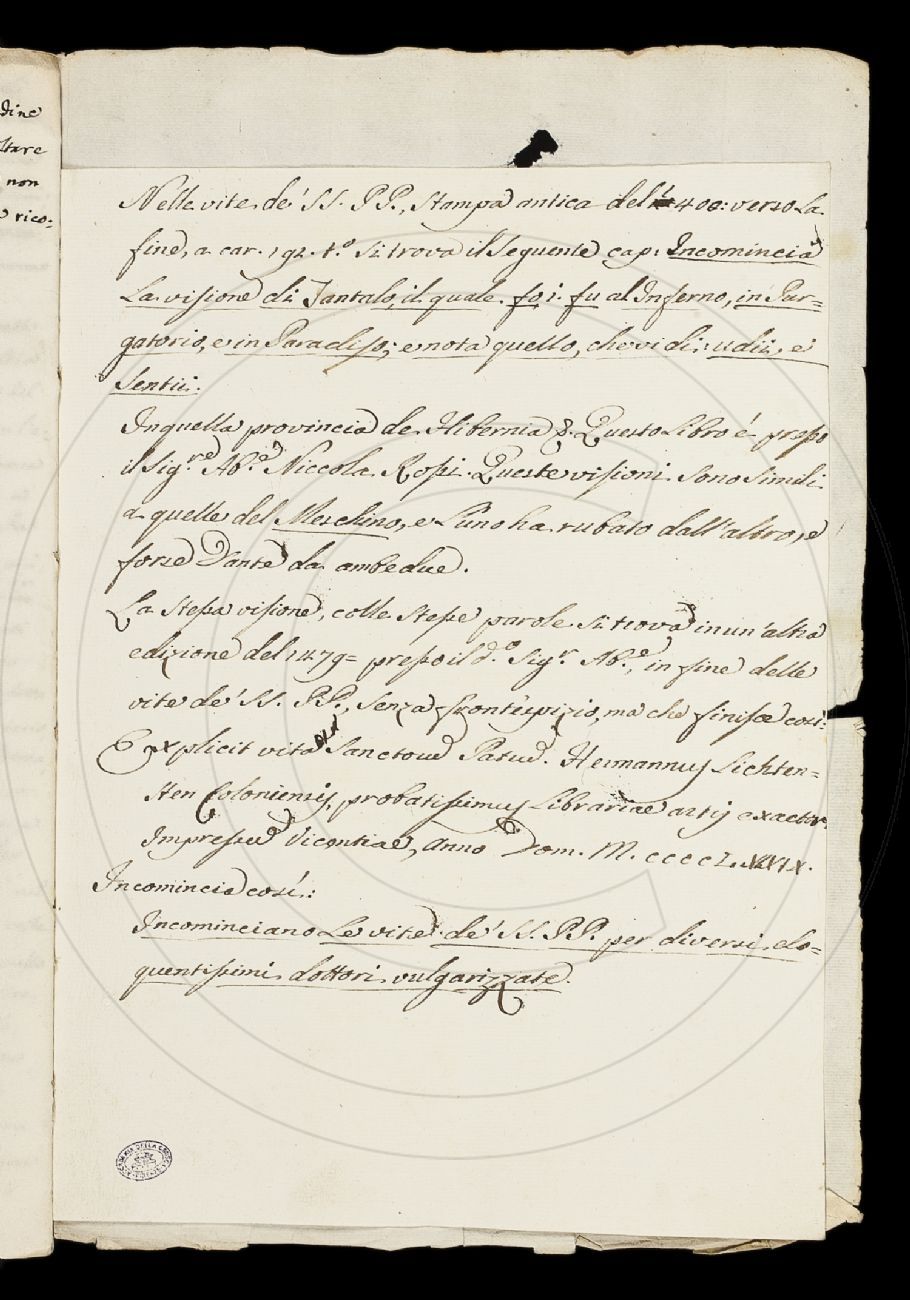 dine
stare
non
rico=
Nelle vite de' SS. PP., stampa antica del 1400: verso la
fine, a car. 192. t.º si trova il seguente cap: Incomincia
la visione di Tantalo, il quale fo, i. fu al Inferno, in Pur=
gatorio, e in Paradiso; e nota quello, che vidi: udii, e
sentii:
In quella provincia de Hibernia &. Questo Libro é presso
il Sig.re Ab.e Niccola Rossi. Queste visioni sono simili
a quelle del Meschino, e l'uno ha rubato dall'altro, e
forse Dante da ambedue.
La stessa visione, colle stesse parole si trova in un'altra
edizione del 1479= presso il d.º Sig.r Ab.e, in fine delle
vite de' SS. PP., senza frontespizio, ma che finisce cosí:
Explicit vita Sanctorum Patrum. Hermannus Lichten=
sten Coloniensis, probatissimus Librariae artis exactor,
Impressum Vicentiae, Anno Dom. M. ccccLXXIX.
Incomincia cosí:
Incominciano Le vite de' SS. PP. per diversi elo=
quentissimi dottori vulgarizzate.